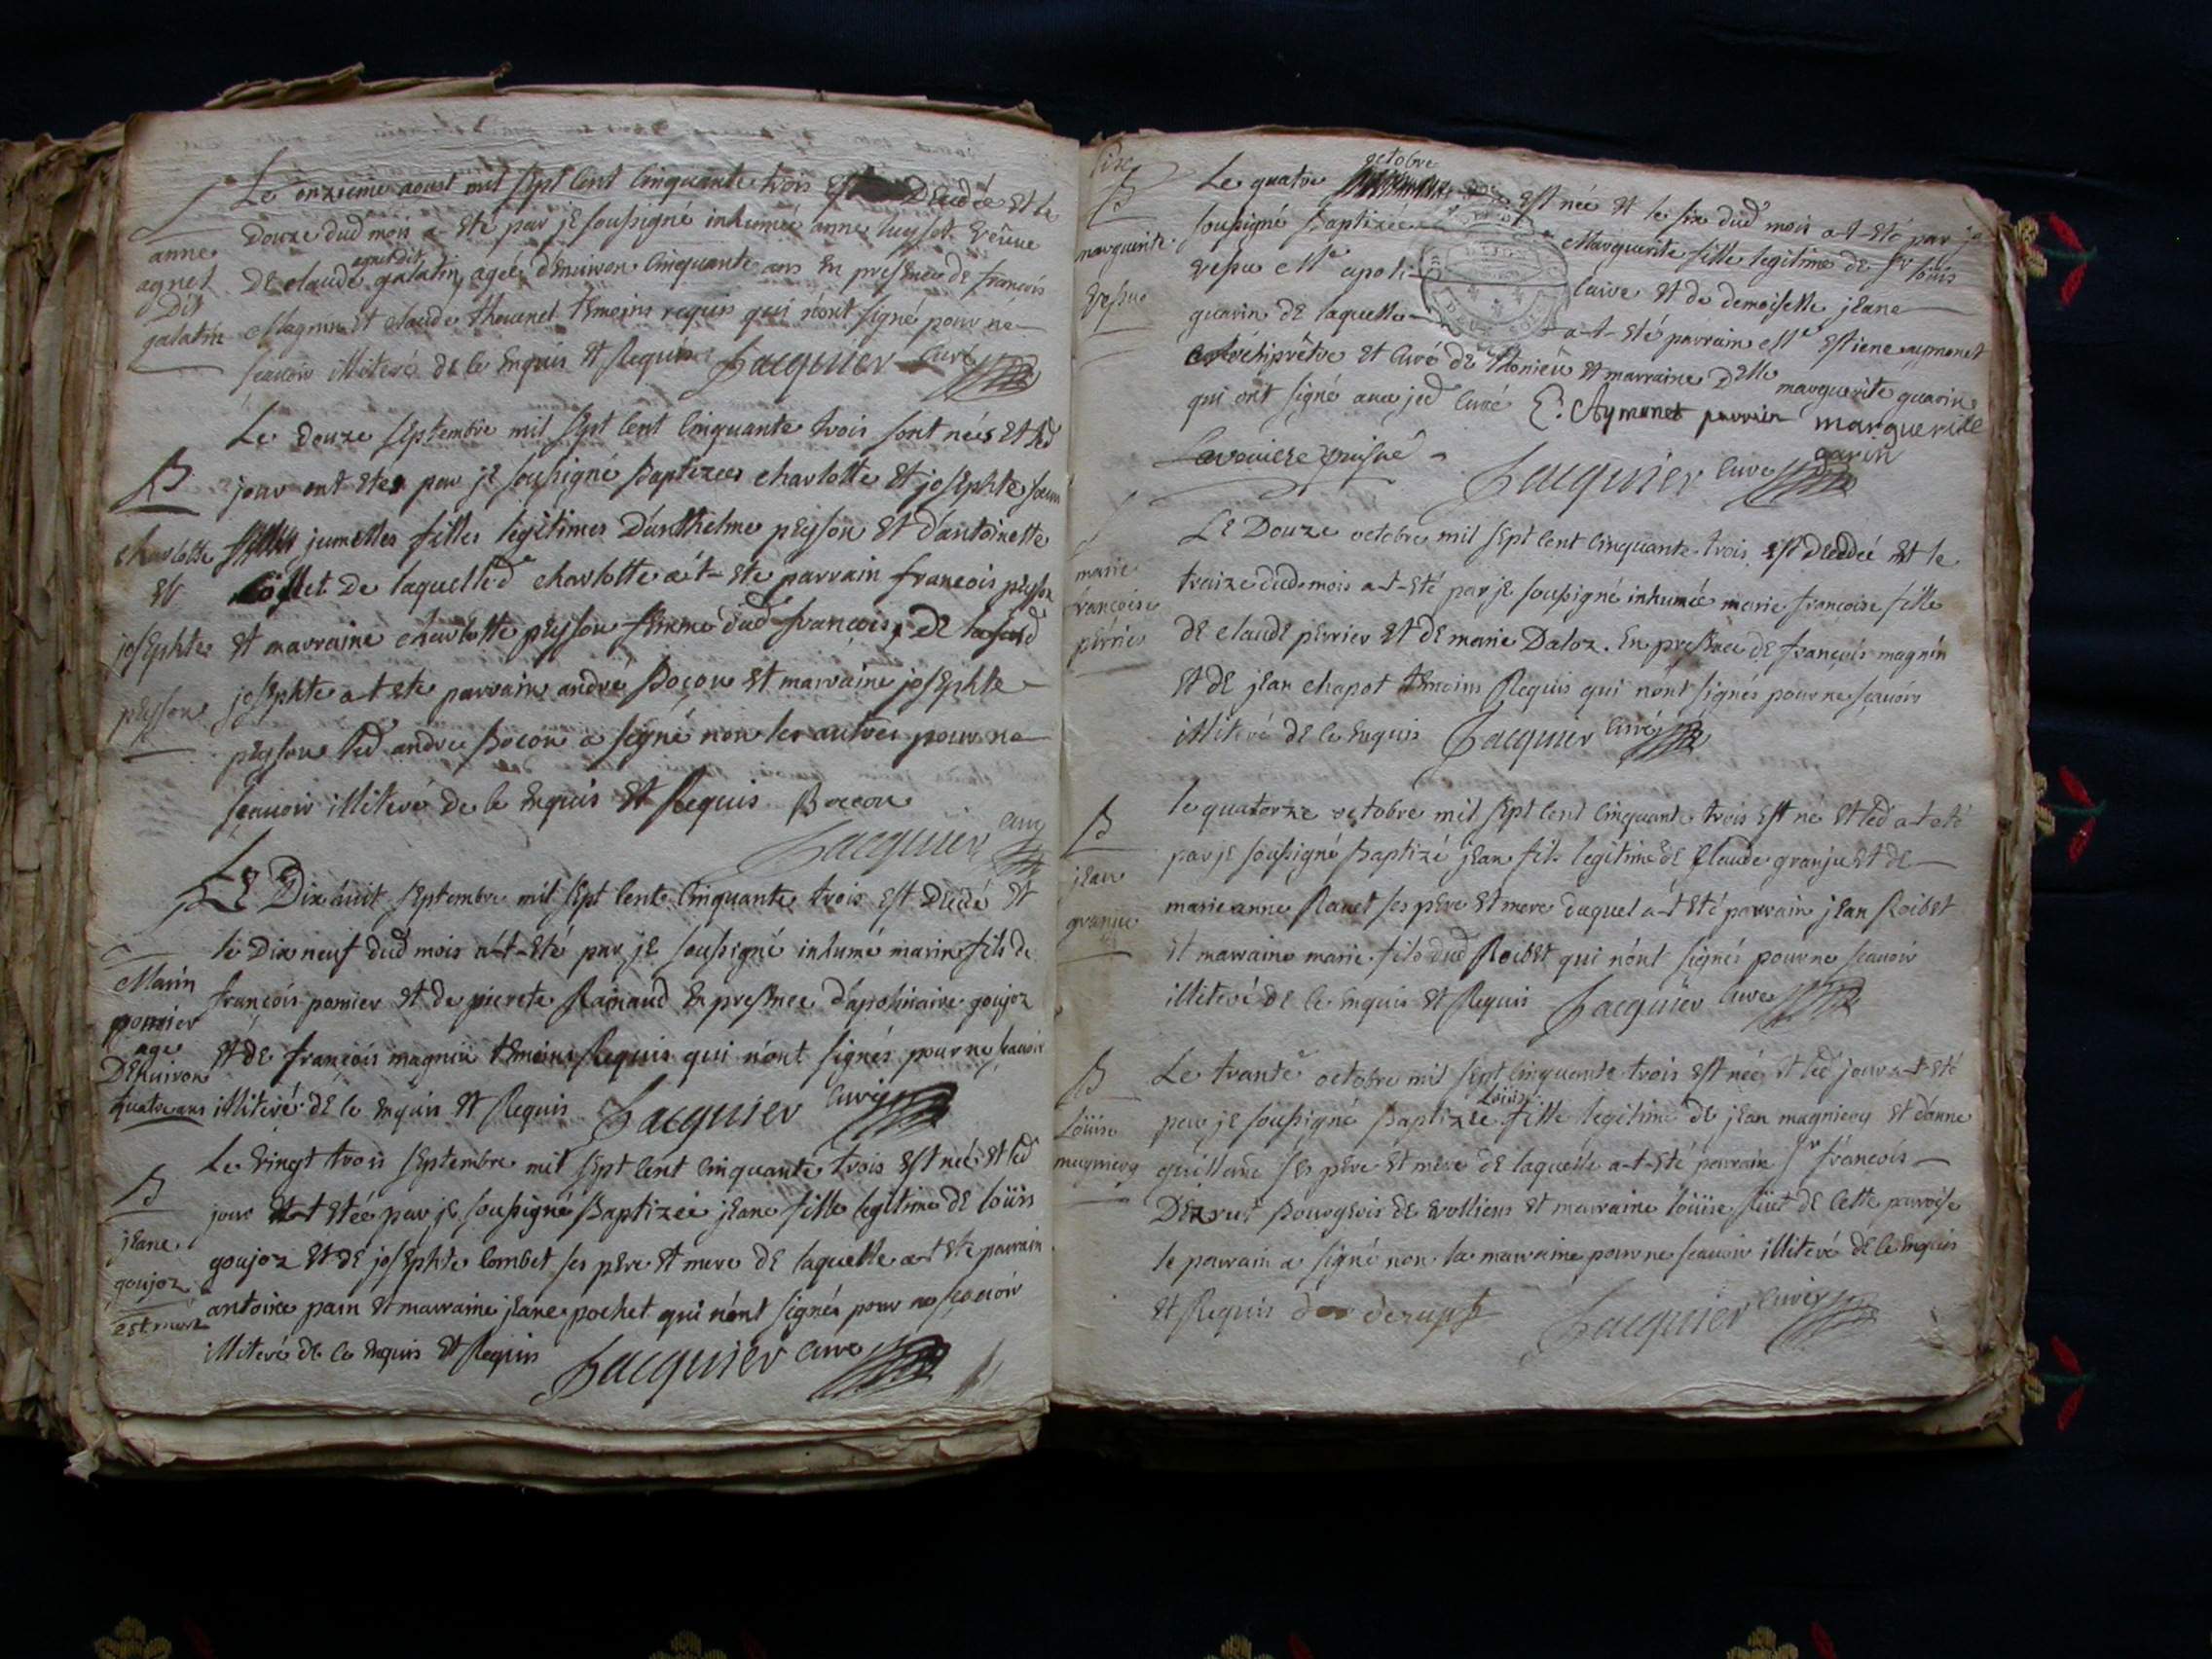 Le onzieme aoust mil sept cent cinquante trois est Decedée et le
anne
agnet
Dit
galatin
Douze dud mois a-t-eté par je soussigné inhumée anne veüve
agnet dit
De claude galatin, agée d'environ cinquante ans En presence de francois
Magnin et claude thevenet temoins requis qui n'ont signe pour ne
scavoir illiteré de ce Enquis et Requis Jacquier curé
Le douze septembre mil sept cent cinquante trois sont nées et led
B
charlotte
et
josephte
peysson
jour ont etes par je soussigné Baptizees charlotte et josephte
jumelles filles legitimes D'anthelme peysson et d'antoinette
De laquelled charlotte a-t-ete parrain francois peysson
et marraine charlotte peysson femme dud francois, De lasusd
josephte a-t-ete parrain andré Boçon et marraine josephte
peysson led andre Bocon a signé non les autres pour ne
scavoir illiteré de ce Enquis et Requis Bocon
Jacquier curé
Le Dix huit septembre mil sept cent cinquante trois est Decedé et
Marin
pomier
agé
D'Environ
quatre ans
le Dix neuf dud mois a-t-eté par je soussigné inhumé marin fils de
françois pomier et de pierrete Rainaud En presence d'apolinaire goujoz
et de francois magnin temoins Requis qui n'ont signés pour ne scavoir
illiteré de ce enquis et Requis Jacquier curé
Le vingt trois septembre mil sept cent cinquante trois est née et led
B
jeane
goujoz
est morte
jour a-t-etée par je soussigné Baptizée jeane fille legitime de loüis
goujoz et de josephte combet ses pere et mere de laquelle a-t-ete parrain
antoine pain et marraine jeane pochet qui n'ont signés pour ne scavoir
illiteré de ce enquis et Requis Jacquier curé
octobre
Le quatre est née et le six dud mois a-t-eté par je
B
marguerite
soussigné Baptizée Marguerite fille legitime de sr loüis
curce et de demoiselle jeane
guarin de laquelle a-t-eté parrain Mre Estiene aymonet
archiprêtre et curé de et marraine Delle marguerite guarin
qui ont signé avec jed curé E. Aymonet parrain marguerite
garin
Jacquier curé
Le Douze octobre mil sept cent cinquante trois est Decedée et le
marie
francoise
perrier
traize dud mois a-t-eté par je soussigné inhumée marie francoise fille
de claude perrier et de marie Daloz. En presence de françois magnin
et de jean chapot temoins Requis qui n'ont signés pour ne scavoir
illiteré de ce enquis Jacquier curé
le quatorze octobre mil sept cent cinquante trois est né et led a-t-eté
B
jean
granju
par je soussigné Baptizé jean fils legitime de Claude granju et de
marie anne Ravet ses pere et mere duquel a-t-eté parrain jean Roibet
et marraine marie fille dud Roibet qui n'ont signés pour ne scavoir
illiteré de ce enquis et Requis Jacquier curé
Le trante octobre mil sept cinquante trois est née et led jour a-t-eté
B
Loüise
magnieng
Loüise
par je soussigné Baptizée fille legitime de jean magnieng et d'anne
ses pere et mere de laquelle a-t-eté parrain sr francois
Derupt Bourgeois de et marraine loüise de cette paroisse
le parrain a signé non la marraine pour ne scavoir illiteré de ce enquis
et Requis derupt Jacquier curé